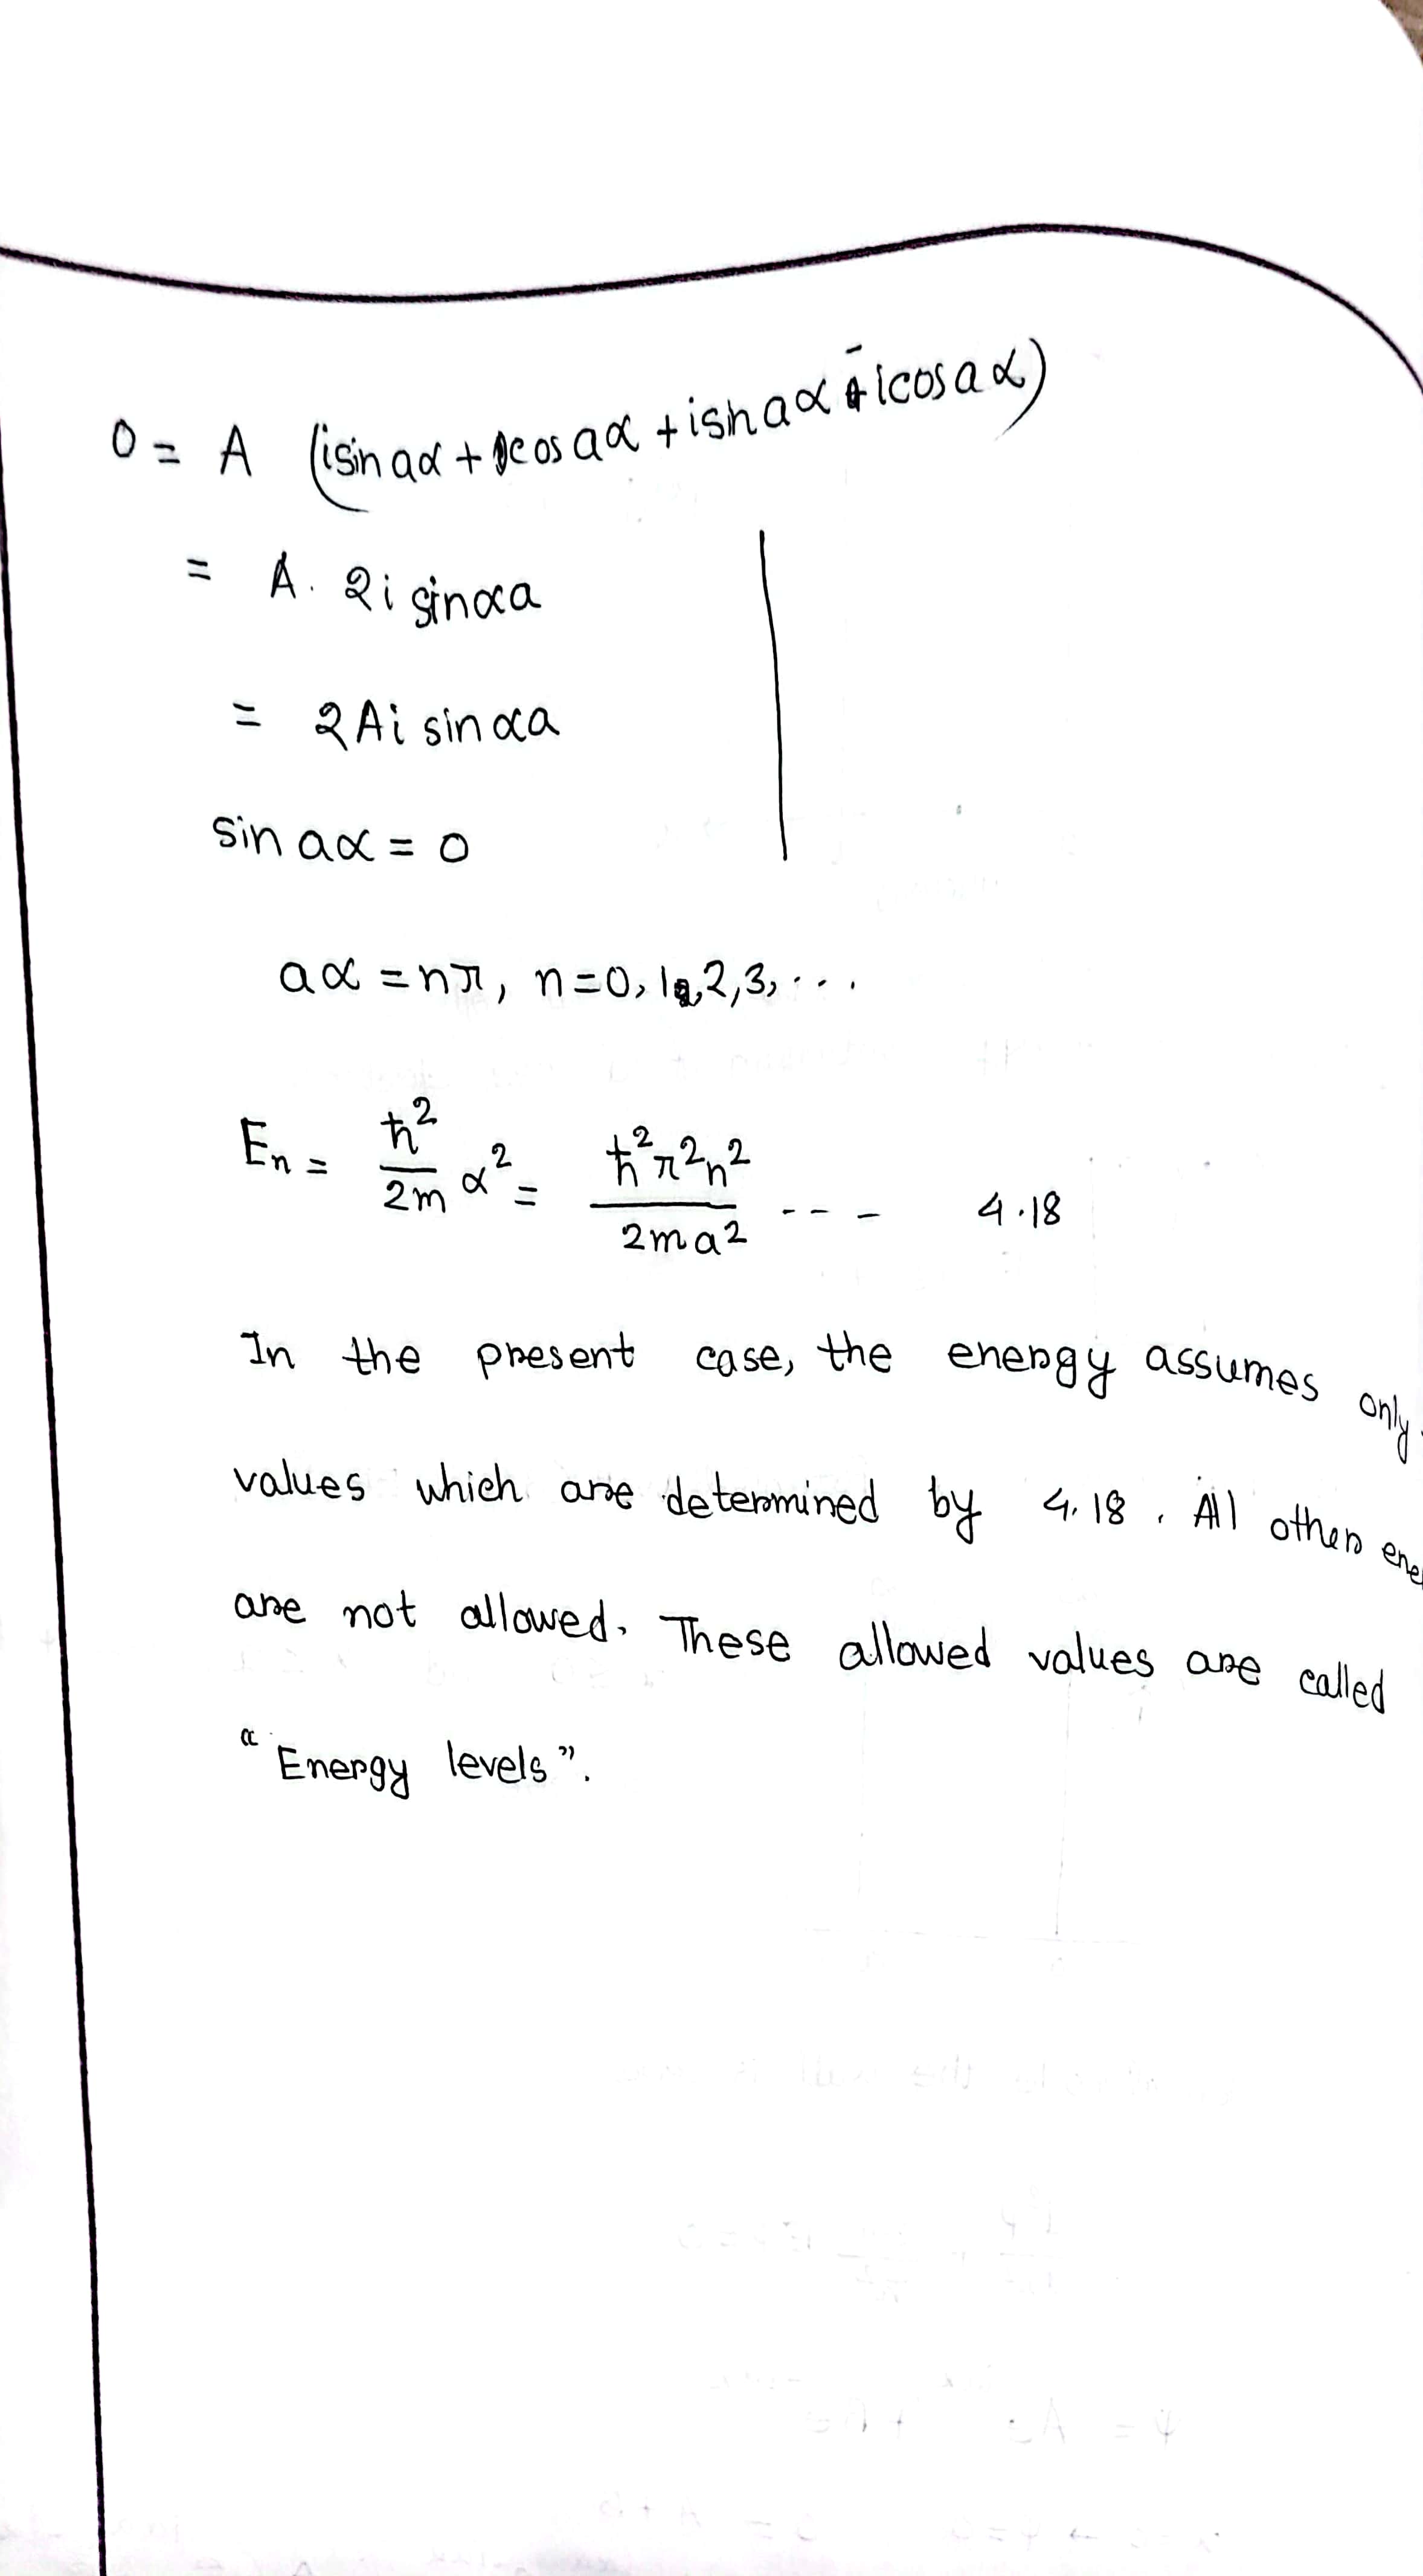 0 = A (isin aα + cos aα + isin aα - icos aα)
= A. 2i sinαa
= 2Ai sinαa
sin aα = 0
aα = nπ, n=0, 1, 2, 3, ...
En = ħ²/2m α² = ħ²π²n²/2ma² --- 4.18
In the present case, the energy assumes only
values which are determined by 4.18. All other
are not allowed. These allowed values are called
"Energy levels".